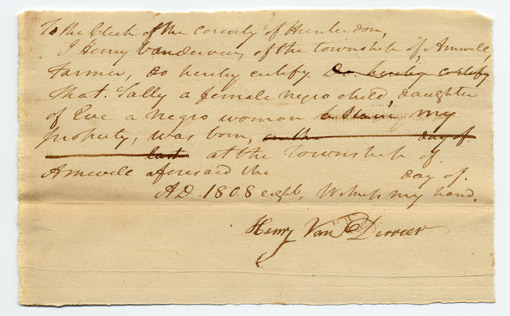 To the Clerk of the county of Hunterdon,
I Henry Vanderveer, of the township of, Amwell,
Farmer, do hereby certify Do hereby certify
that, Sally a female negro child, daughter
of Eve a negro woman a slave, my
property, was born, on the day of
last at the Township of
Amwell aforesaid the day of
AD. 1808 Witness my hand.
Henry Van Derveer